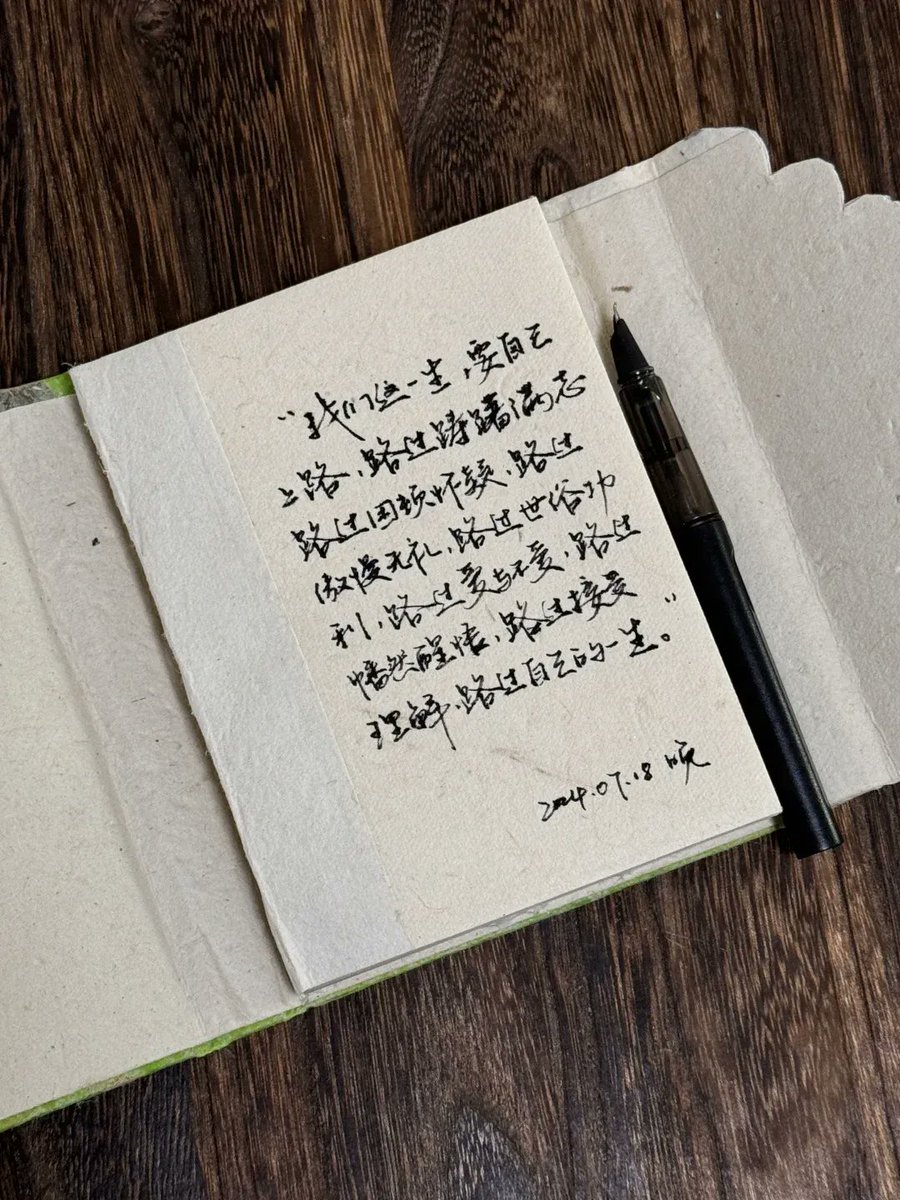 “我们这一生，要自己
上路，路过踌躇满志
路过困顿怀疑，路过
傲慢无礼，路过世俗功
利，路过爱与不爱，路过
幡然醒悟，路过接受
理解，路过自己的一生。”
2024.07.18 晚